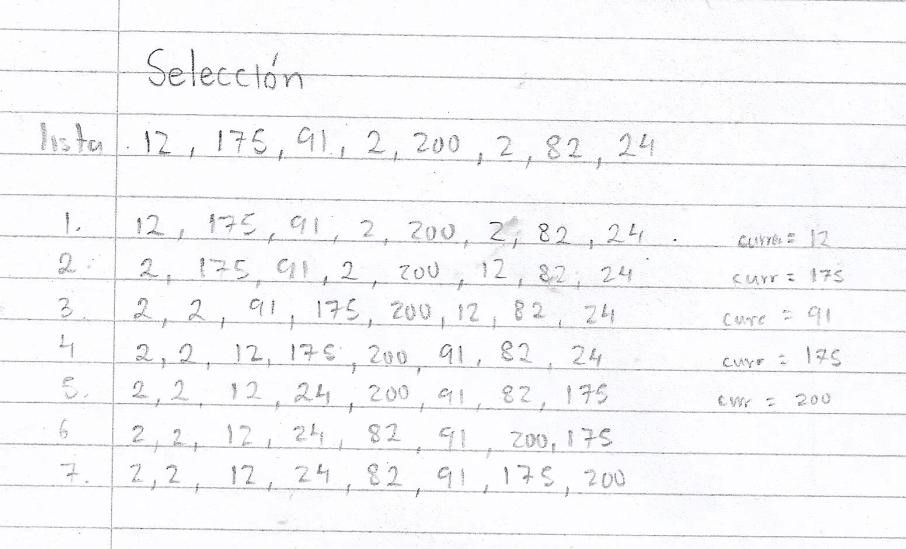 Selección
lista 12, 175, 91, 2, 200, 2, 82, 24
1. 12, 175, 91, 2, 200, 2, 82, 24. curre = 12
2. 2, 175, 91, 2, 200, 12, 82, 24 curr = 175
3. 2, 2, 91, 175, 200, 12, 82, 24 curr = 91
4 2, 2, 12, 175, 200, 91, 82, 24 curr = 175
5. 2, 2, 12, 24, 200, 91, 82, 175 curr = 200
6 2, 2, 12, 24, 82, 91, 200, 175
7. 2, 2, 12, 24, 82, 91, 175, 200